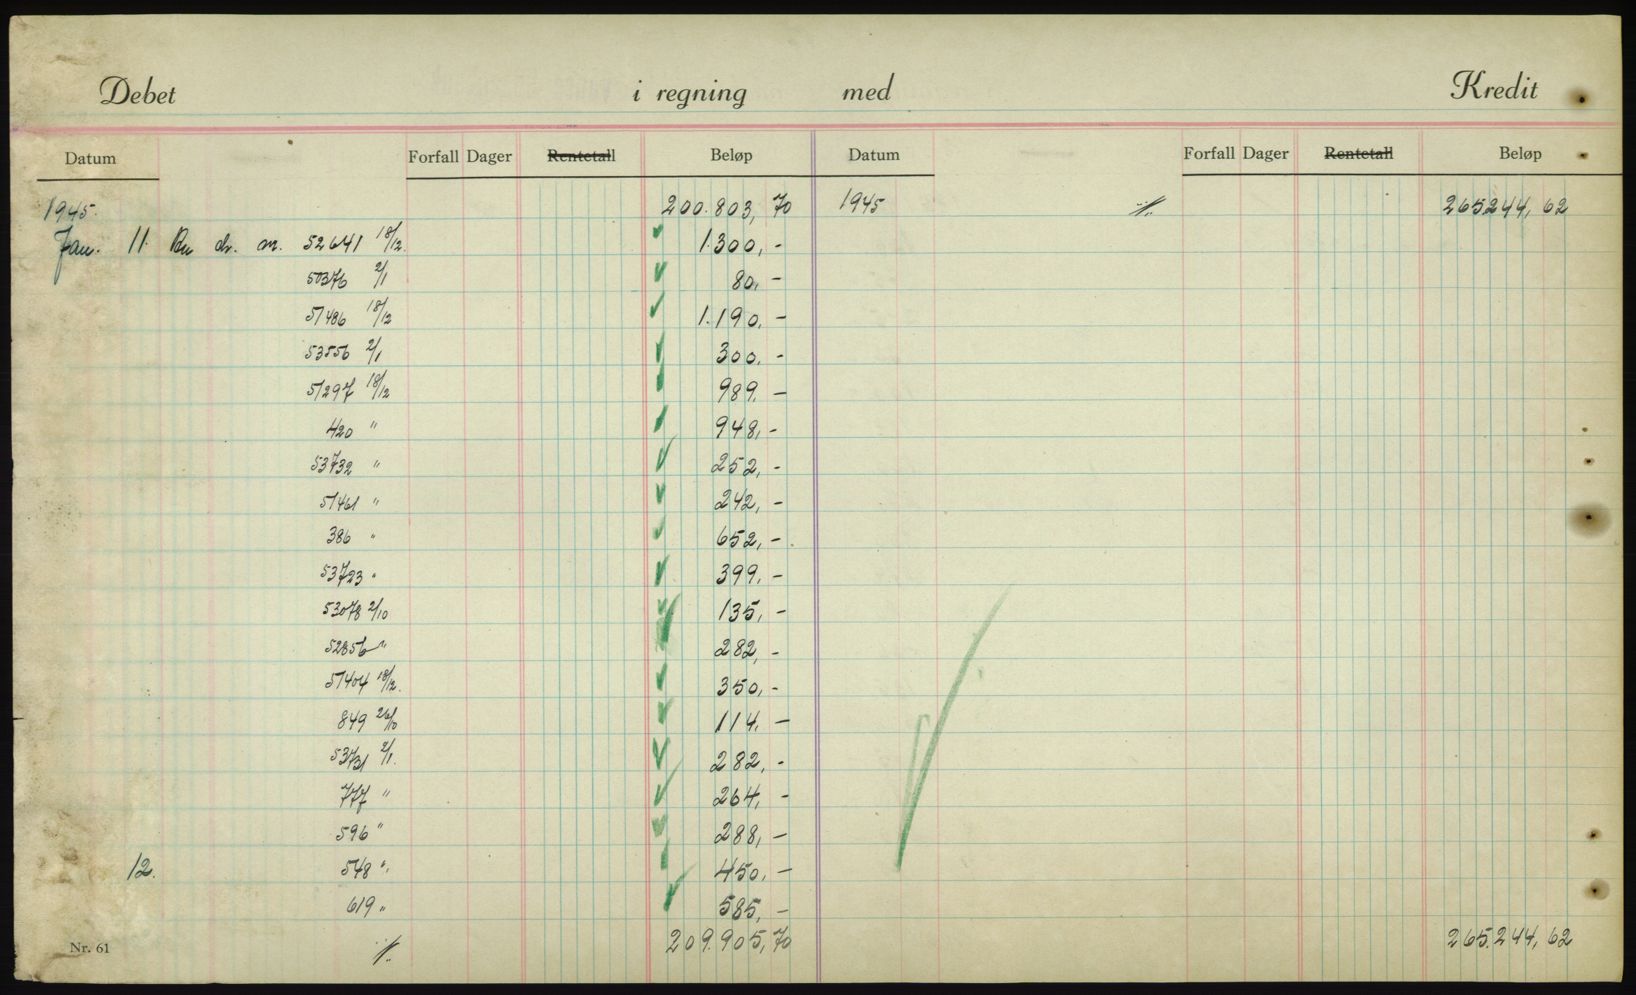 Debet i regning med Kredit
Datum Forfall Dager Rentetall Beløp Datum Forfall Dager Rentetall Beløp
1945. 200.803,70 1945 ./. 265.244,62
Jan. 11. dr. nr. 52641 18/12. 1.300,-
50376 2/1 80,-
51486 18/12 1.190,-
53556 2/1 300,-
51297 18/12 989,-
420 " 948,-
53732 " 252,-
51461 " 242,-
386 " 652,-
53723 " 399,-
53078 2/10 135,-
52856 " 282,-
51404 18/12. 350,-
849 26/10 114,-
53731 2/1. 282,-
777 " 264,-
596 " 288,-
12. 548 " 450,-
619 " 585,-
Nr. 61 ./. 209.905,70 265.244,62